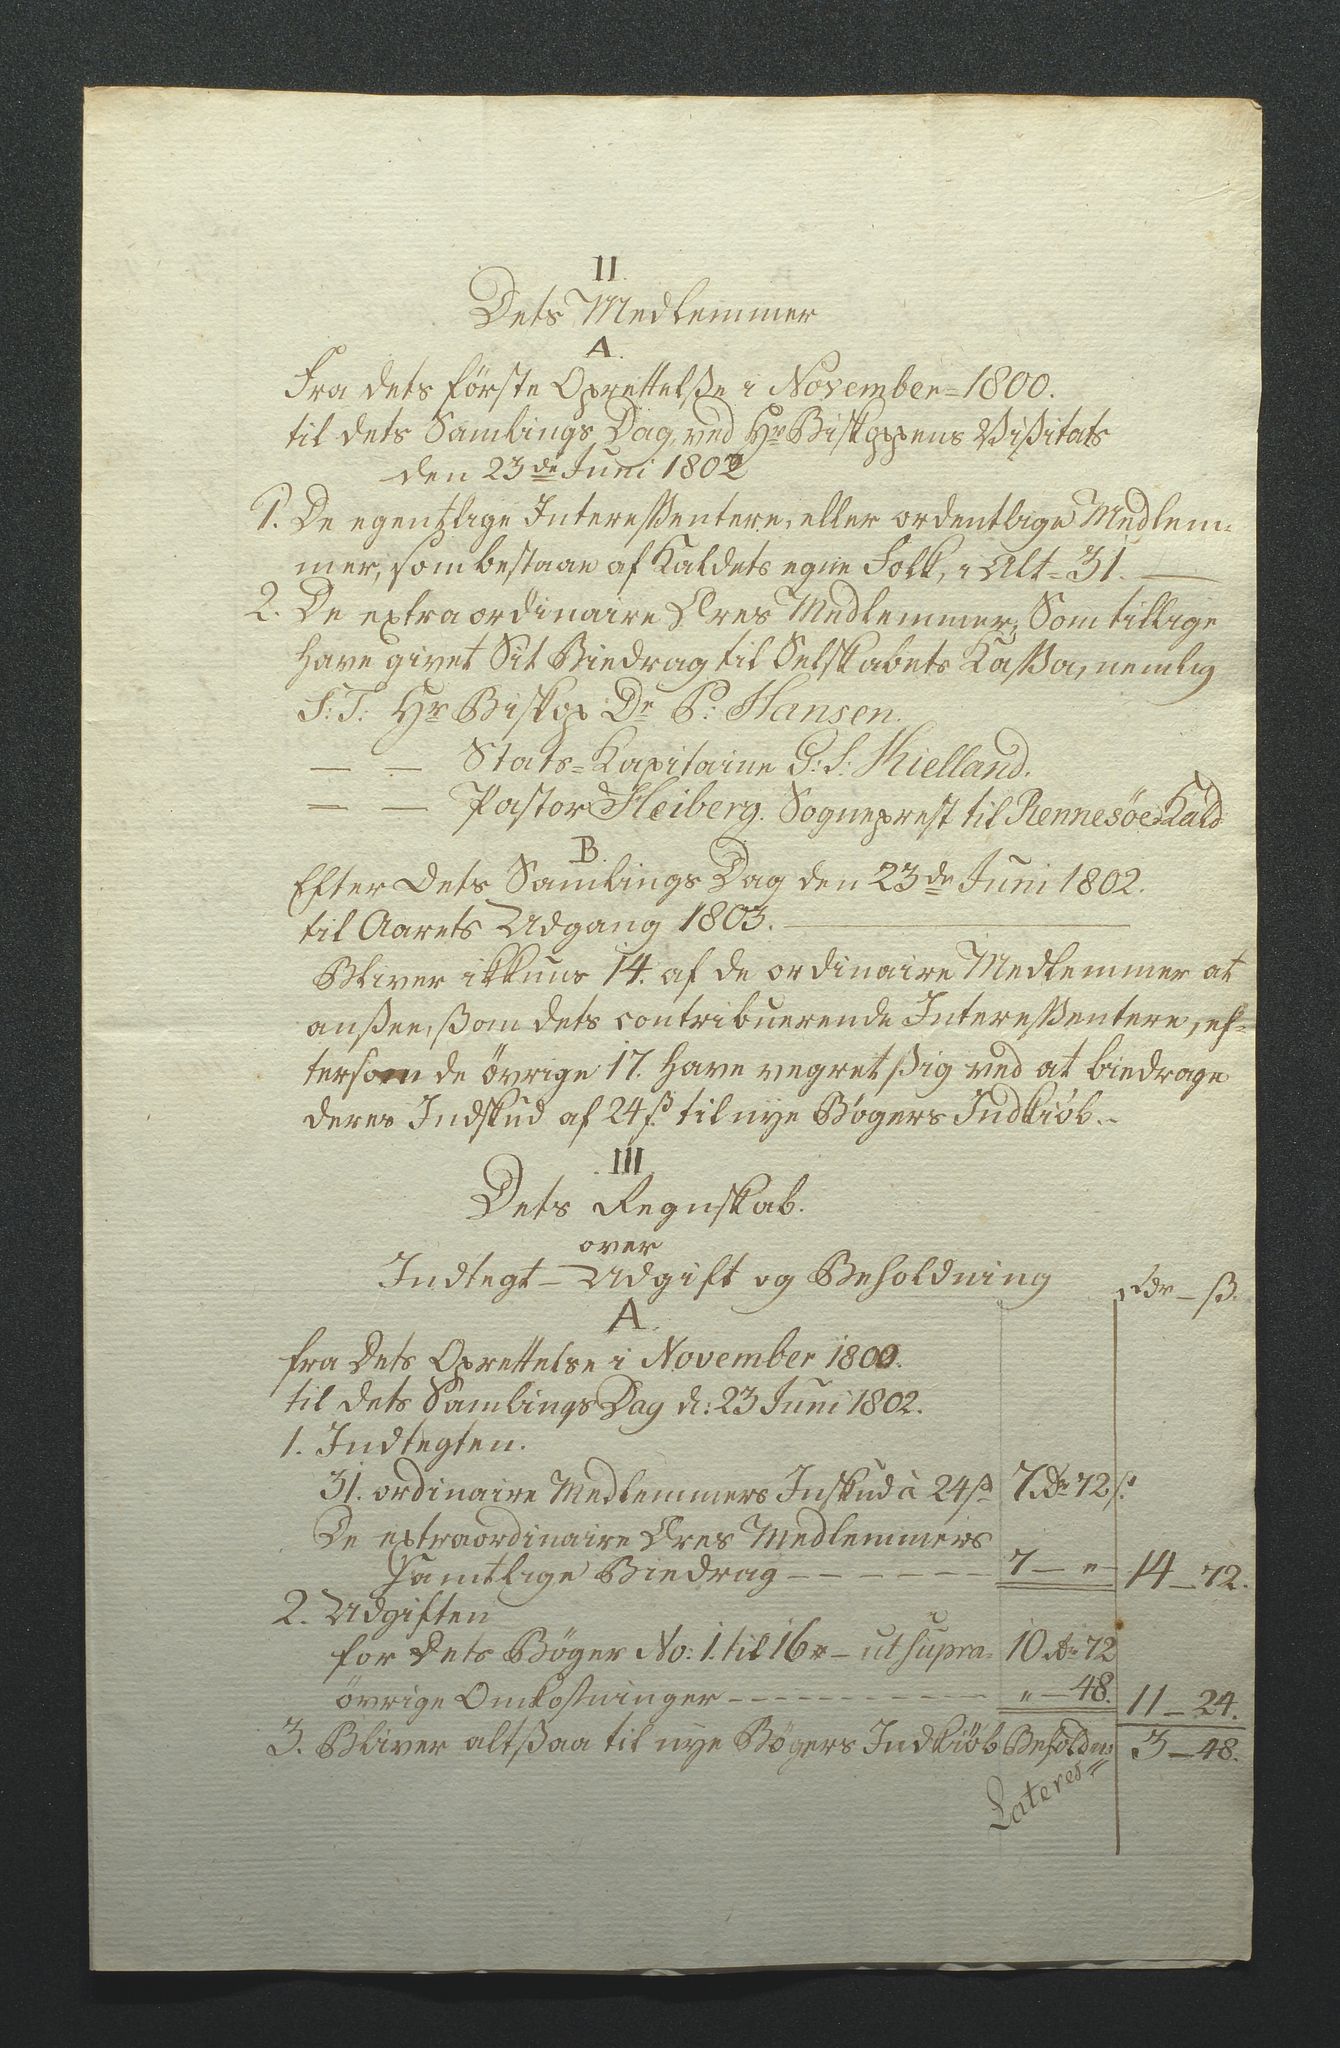 II.
Dets Medlemmer
A.
Fra dets förste Oprettelße i November=1800.
til dets Samlings Dag, ved Hr Biskoppens Vißitats
den 23de Juni 1802
1. De egentlige Interessentere, eller ordentlige Medlem-
mer, som bestaae af Kaldets egne Folk, i Alt=31.
2. De extraordinaire Æres Medlemmer, Som tillige
have givet Sit Biedrag til Selskabets Kassa, nemlig
S: T: Hr Biskop Dr P: Hansen.
— — Stats=Kapitaine G: S: Kielland.
— — Pastor Heiberg. Sogneprest til Rennesöe Kald
B.
Efter Dets Samlings Dag den 23de Juni 1802.
til Aarets Udgang 1803.
Bliver ikkuns 14. af de ordinaire Medlemmer at
anßee, ßom dets contribuerende Interessentere, ef-
tersom de övrige 17. have vegret ßig ved at biedrage
deres Indskud af 24 ß til nye Bögers Indkiöb.-
III
Dets Regnskab.
over
Indtegt - Udgift og Beholdning
Rdr - ß.
A.
fra Dets Oprettelse i November 1800.
til dets Samlings Dag d: 23 Juni 1802.
1. Indtegten.
31. ordinaire Medlemmers Inskud à 24 ß 7 Rdr 72 ß.
De extraordinaire Æres Medlemmers
Samtlige Biedrag — — — — — 7 — " — 14 — 72.
2. Udgiften
for dets Böger No: 1. til 16 - ut supra 10 Rdr 72
övrige Omkostninger — — — — — " — 48. 11 — 24.
3. Bliver altßaa til nye Bögers Indkiöb Beholdn: 3 — 48.
Lateres